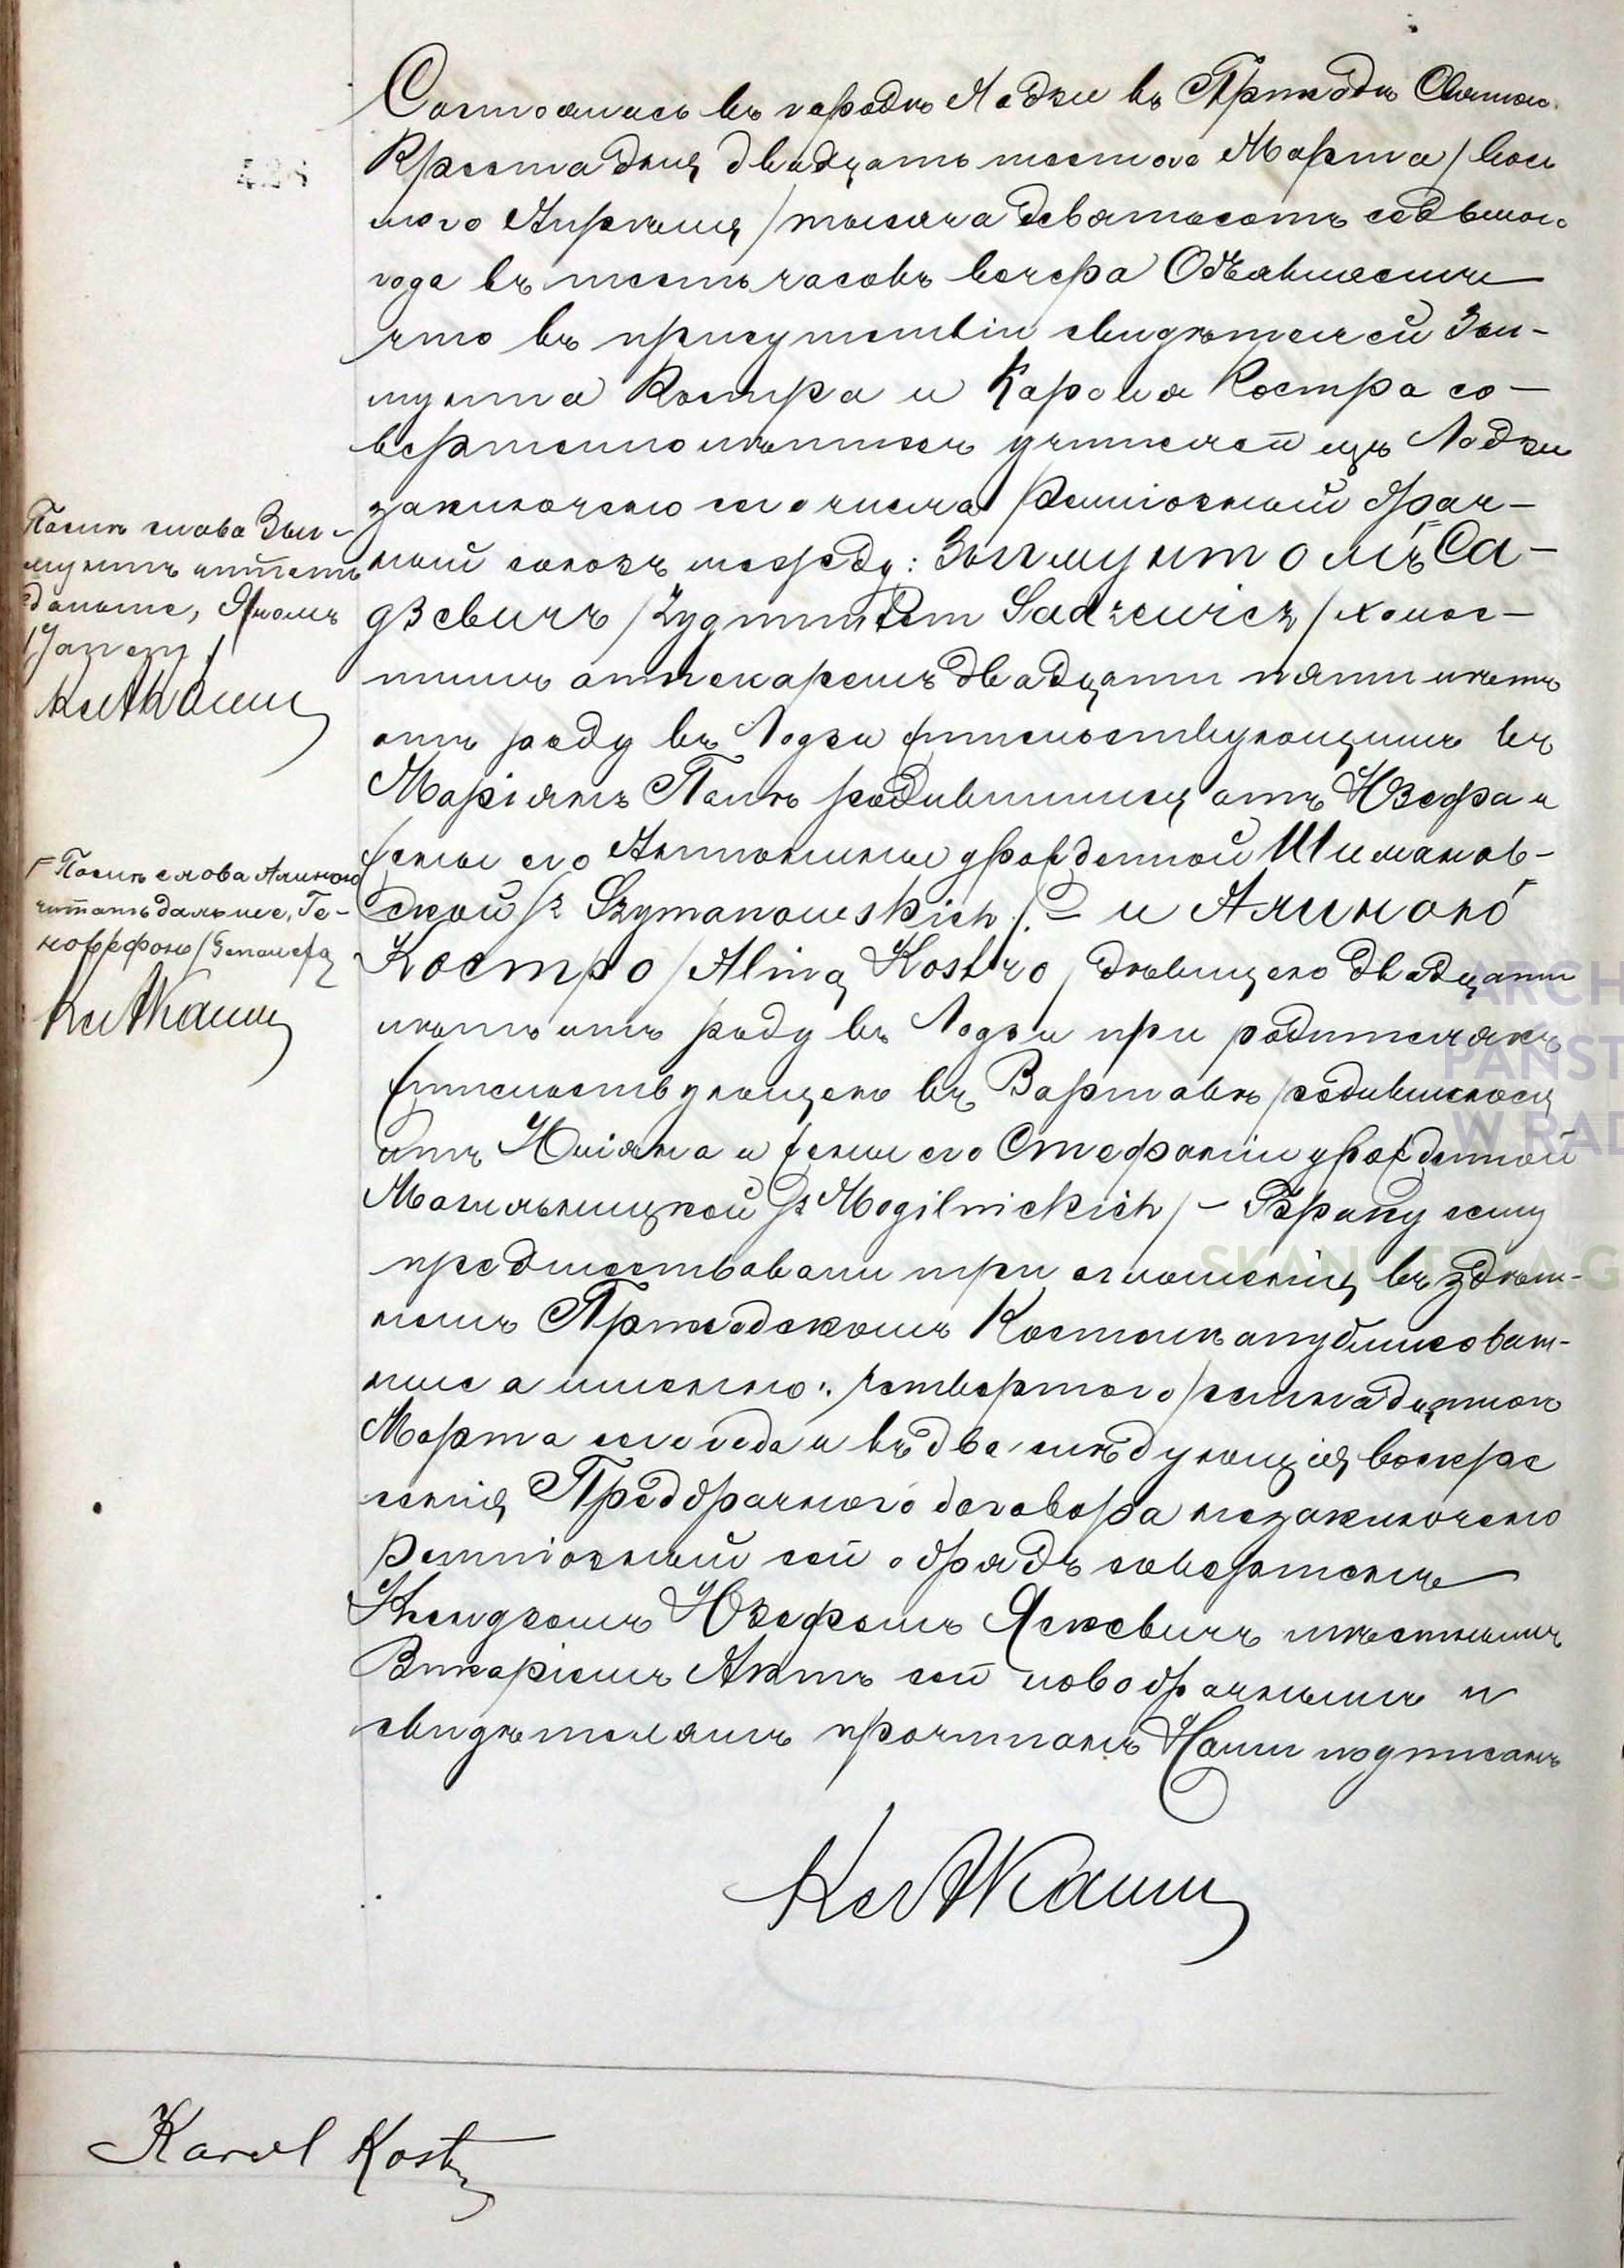 428
Состоялось въ городѣ Лодзи въ Приходѣ Святаго
Креста дня двадцать шестого Марта / вось
мого Апрѣля / тысяча девятьсотъ седьмого
года въ шесть часовъ вечера Объявляемъ
что въ присутствіи свидѣтелей Зыг-
мунта Костра и Кароля Костра со-
вершеннолѣтнихъ учителей изъ Лодзи
заключено сего числа религіозный брач-
ный союзъ между: Зыгмунтомъ Са-
дзевичъ / Zygmuntem Sadzewicz / холос-
тымъ аптекаремъ двадцати пяти лѣтъ
отъ роду въ Лодзи жительствующимъ въ
Маріянъ Полѣ родившимся отъ Юзефа и
жены его Антонины урожденной Шиманов-
ской /z Szymanowskich/. и Алиною
Костро /Aliną Kostro/ дѣвицею двадцати
лѣтъ отъ роду въ Лодзи при родителяхъ
жительствующею въ Варшавѣ родившеюся
отъ Юліяна и жены его Стефаніи урожденной
Могильницкой /z Mogilnickich/ – Браку сему
предшествовали три оглашенія въ здѣш-
немъ Приходскомъ Костелѣ опубликован-
ные а именно: четвертого /семнадцатого
Марта сего года и въ две слѣдующія воскре
сенія Предбрачного договора незаключено
религіозный сей обрядъ совершенъ
Ксендзомъ Юзефомъ Яскевичъ мѣстнымъ
Викаріемъ Актъ сей новобрачнымъ и
свидѣтелямъ прочитанъ Нами подписанъ
Послѣ слова Зыг-
мунтъ читать
дальше, Яномъ
/Janem/
Послѣ слова Алиною
читать дальше, Ге-
новефою /Genowefą
Karol Kostro
ARCH
PAŃST
W RAD
SKANOTEKA.G